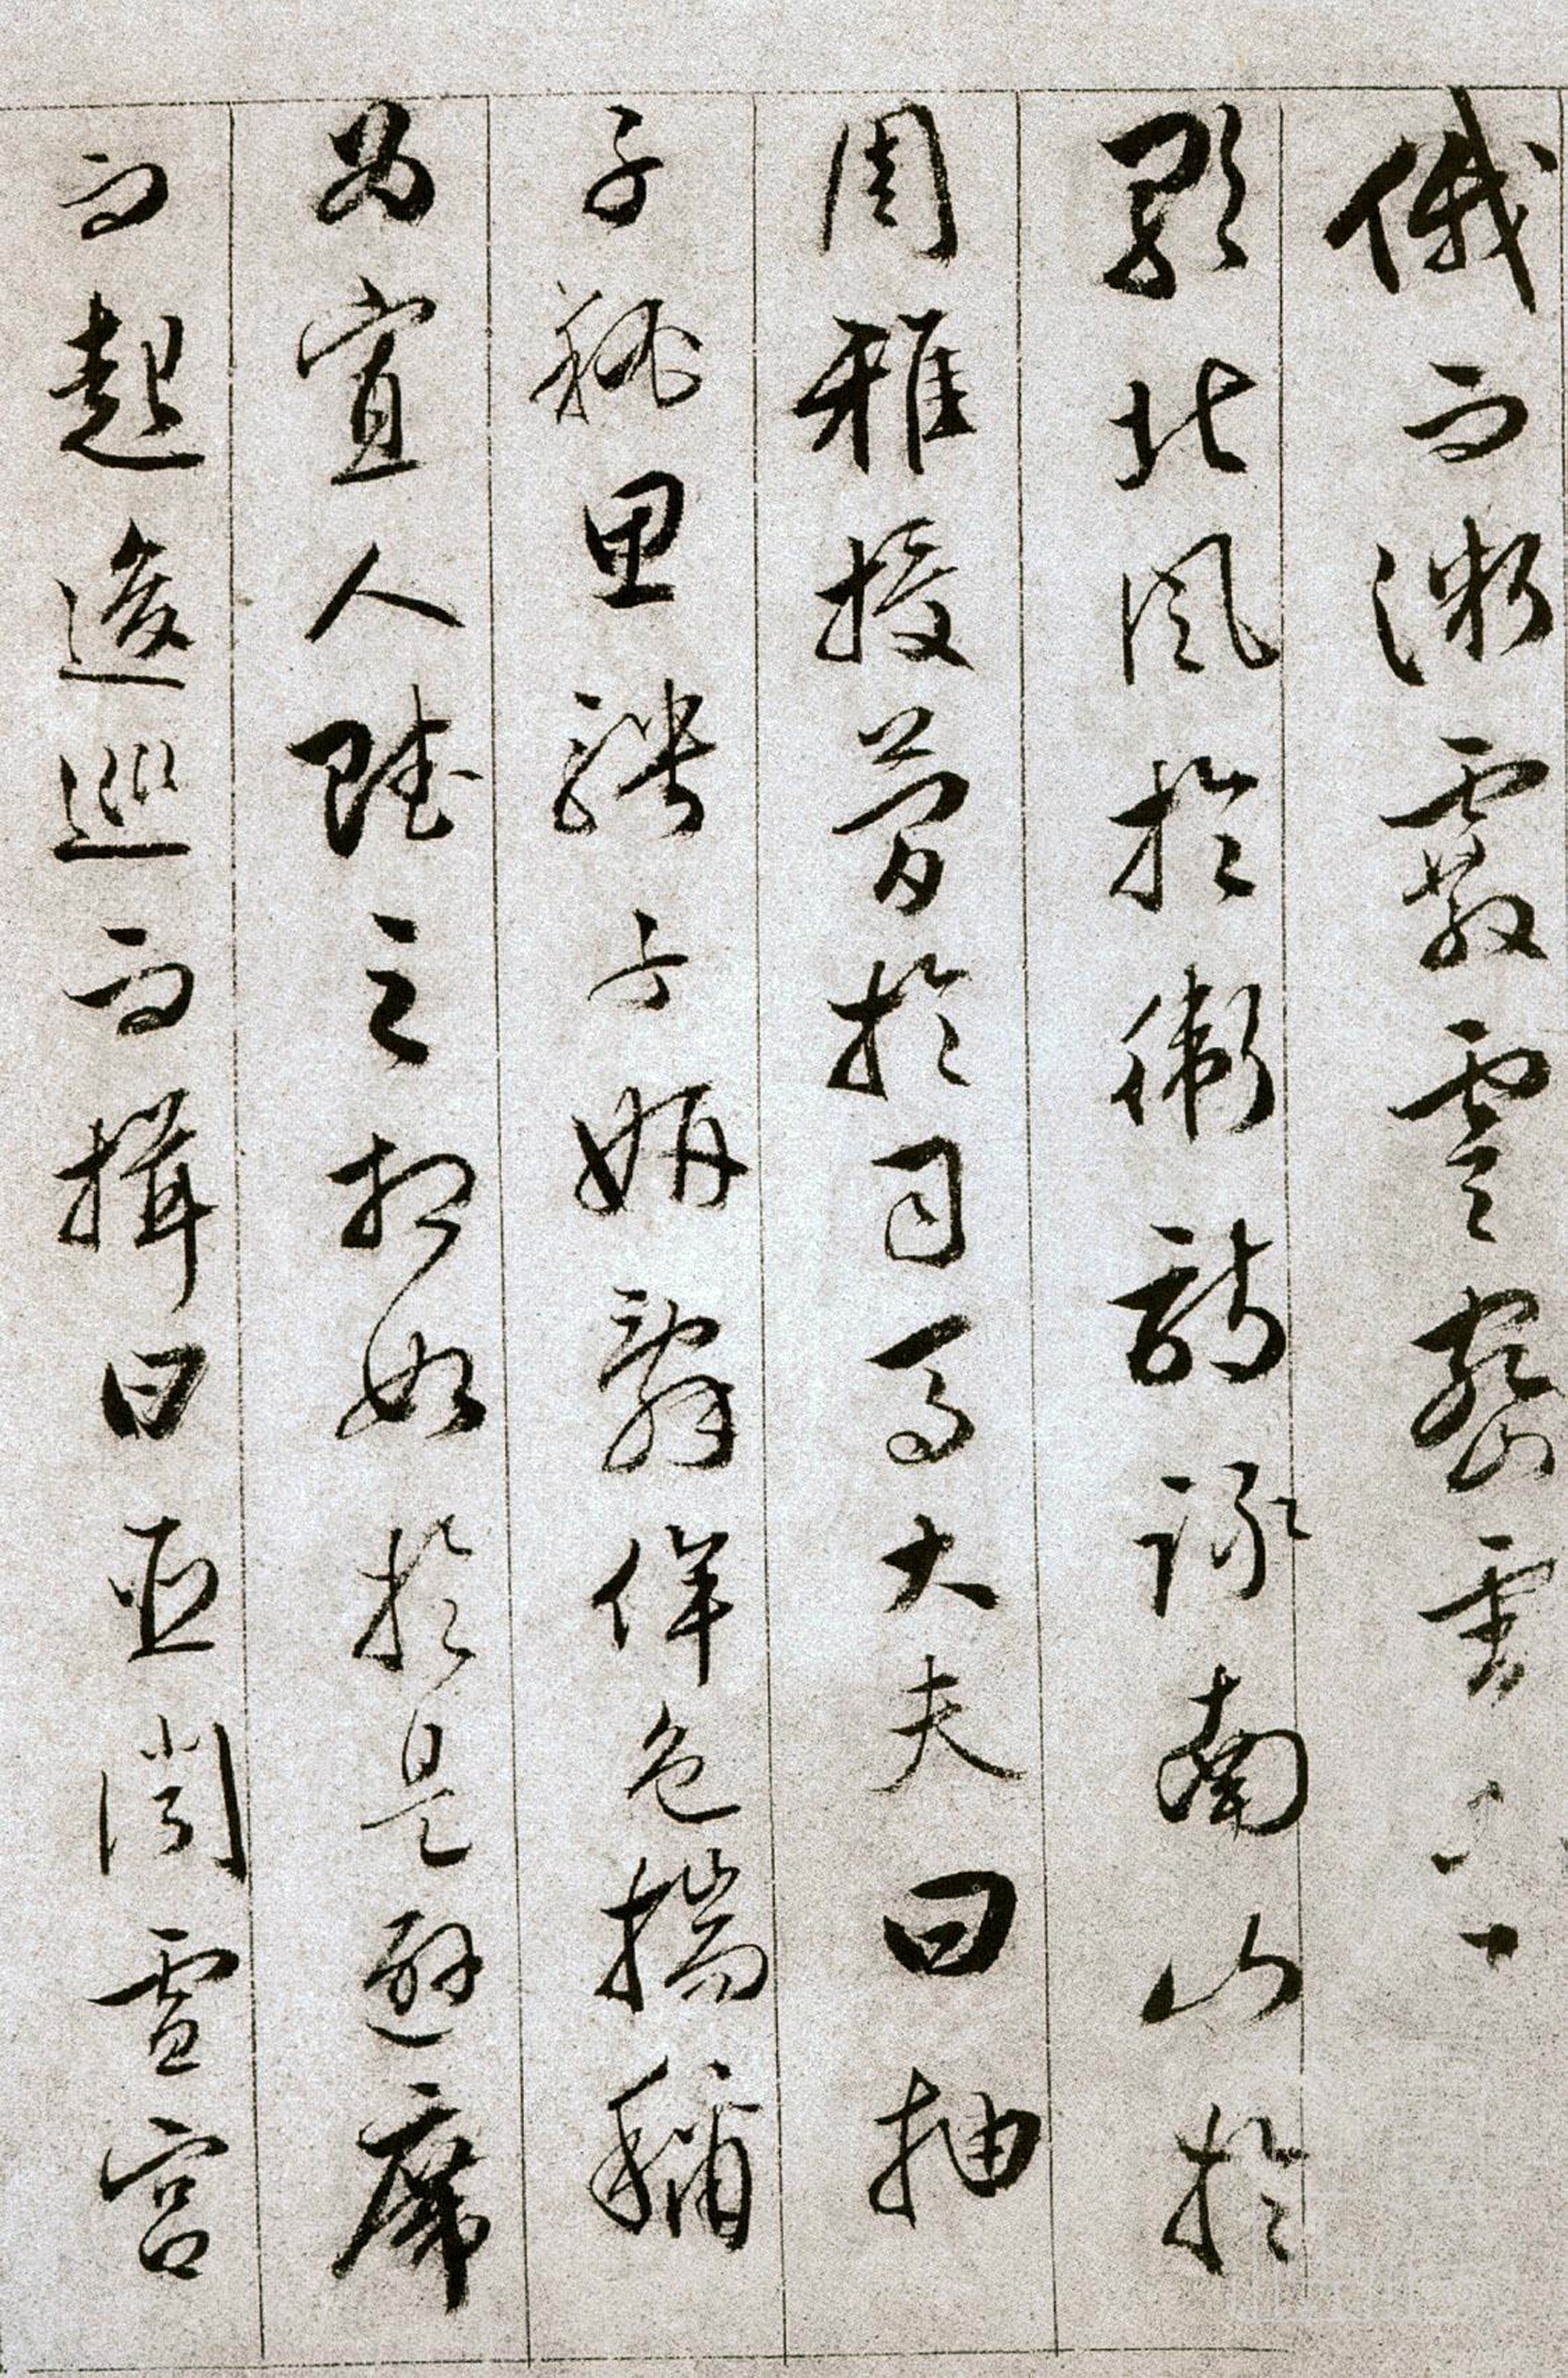 俄而微霰零密雪
歌北風於衛詩詠南山於
周雅授簡於司馬大夫曰抽
子秘思騁子妍辭侔色揣稱
為寡人賦之相如於是避席
而起逡巡而揖曰臣聞雪宮